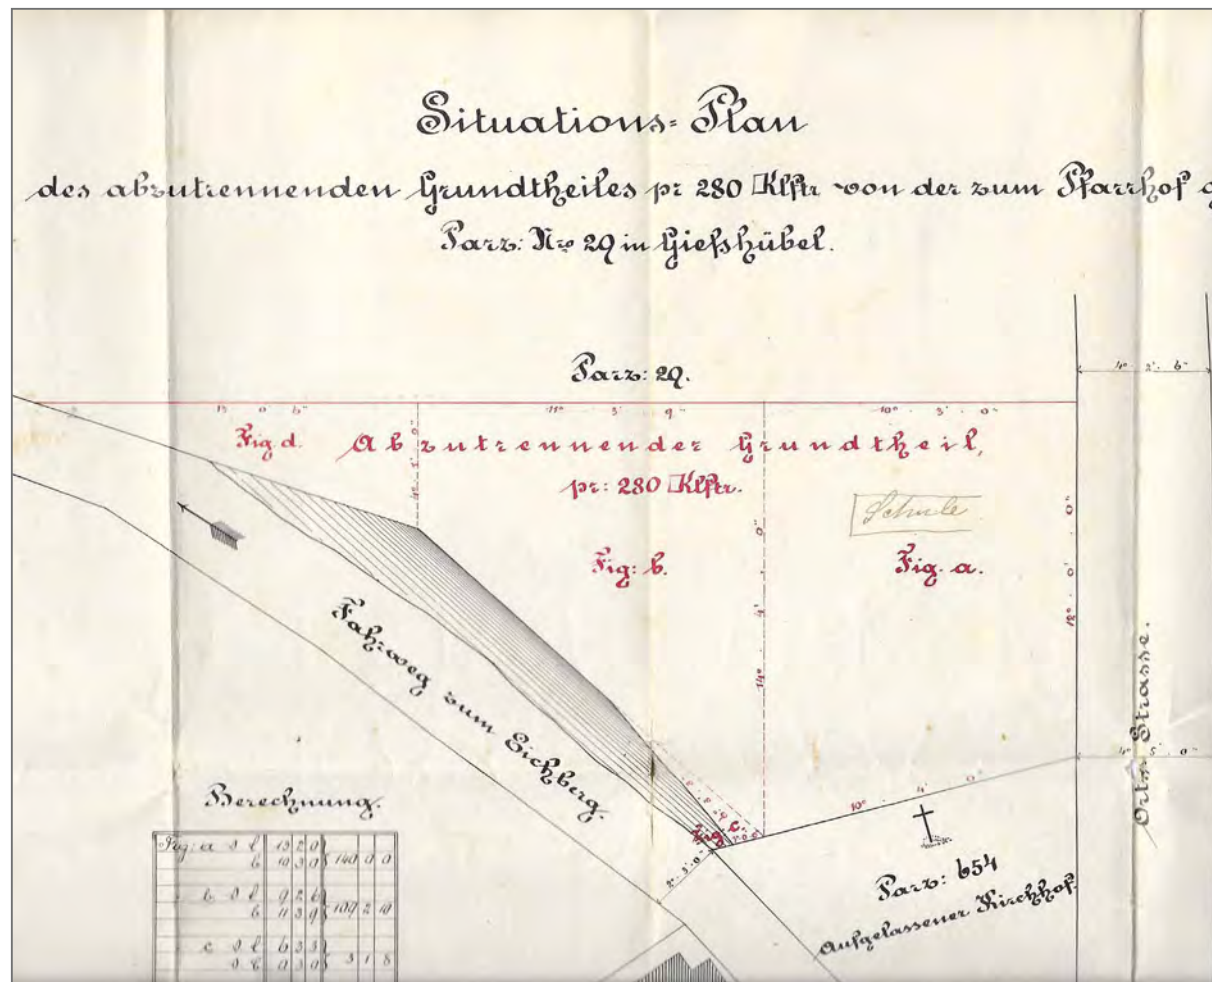 Situations-Plan
des abzutrennenden Grundtheiles pr 280 □Klftr von der zum Pfarrhof
Parz: Nro 29 in Gießhübel.
Parz: 29.
4° 2' 6"
13 0 6"
11° 3' 9"
10° 3' 0"
Fig. d. Abzutrennender Grundtheil,
pr: 280 □Klftr.
Schule
Fig: b.
Fig. a.
14° 4' 0"
12° 0' 0"
Fahrweg zum Eichberg.
Orts-Strasse.
4° 5' 0"
10° 4' 0"
Fig. c.
2° 3' 0"
Parz: 654
Aufgelassener Kirchhof.
Berechnung.
Fig: a d l 13 2 0
b 10 3 0 140 0 0
b d l 9 2 6
b 11 3 9 109 2 10
c d l 6 3 3
d b 0 3 0 3 1 8